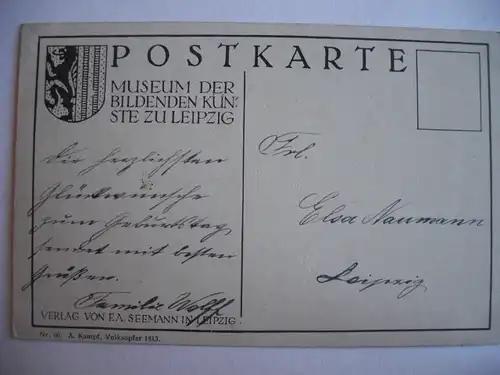 POSTKARTE
MUSEUM DER
BILDENDEN KÜN-
STE ZU LEIPZIG
Die herzlichsten
Glückwünsche
zum Geburtstag
sendet mit besten
Grüßen.
Familie Wolff
VERLAG VON E.A. SEEMANN IN LEIPZIG.
Nr. 60. A. Kampf, Volksopfer 1813.
Frl.
Elsa Naumann
Leipzig